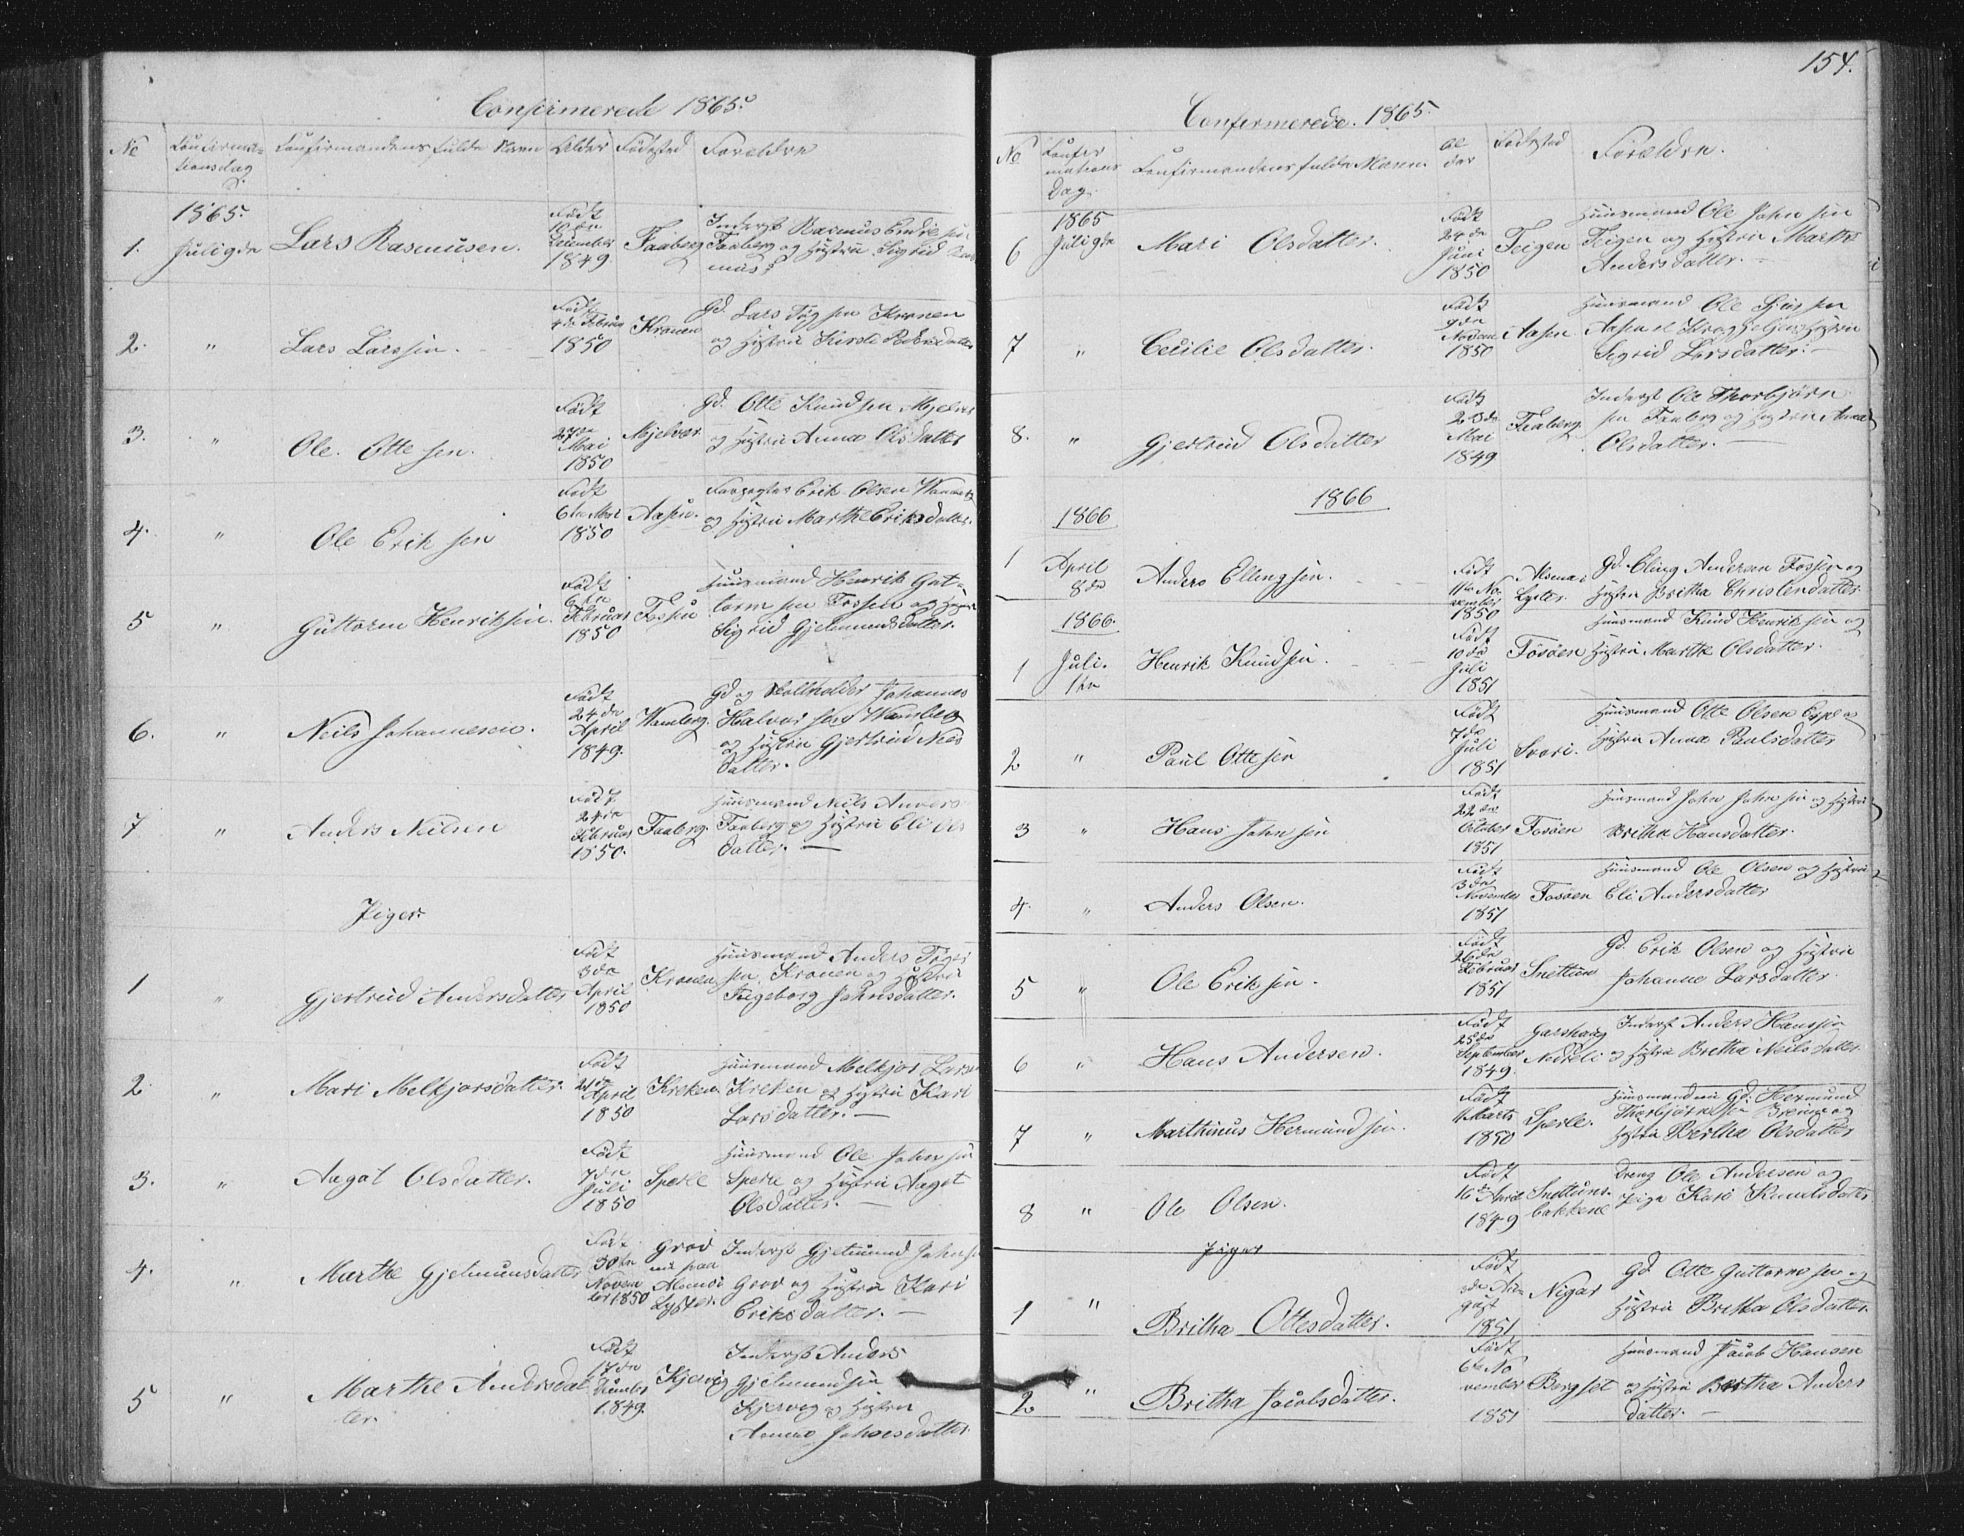 Confirmerede 1865.
No Confirmationsdag Confirmandens fulde Navn Alder Födested Forældre
1865.
1. Juli 9de Lars Rasmusen. Födt 10de December 1849 Faaberg Inderst Rasmus Endresen
Faaberg og Hustru Sigrid
2. " Lars Larssen. Födt 4de Februar 1850 Kronen Gd. Lars Kronen
og Hustru Pedersdatter
3. " Ole Ottesen. Födt 27de Mai 1850 Mjelvær Gd. Otte Knudsen Mjelvær
og Hustru Anna Olsdatter
4. " Ole Eriksen Födt 6te Mai 1850 Aasen. Forpagter Erik Olsen
og Hustru Marthe Eriksdatter.
5 " Guttorm Henriksen. Födt 6te Februar 1850 Fossen Huusmand Henrik Gut-
tormsen Fossen og Hustru
Sigrid Gjelmundsdatter.
6. " Neils Johannesen. Födt 24de April 1849. Wamberg. Gd og Johannes
Halvorsen Wamberg
og Hustru Gjertrud Niels
datter.
7 " Anders Neilsen Födt 24de Februar 1850. Faaberg. Huusmand Neils Anders
Faaberg og Hustru Eli Ols
datter. —
Piger.
1 " Gjertrud Andersdatter Födt 3de April 1850 Kronen Huusmand Anders
sen Kronen og Hustru
Ingeborg Johnsdatter.
2. " Mari Melkjorsdatter. Födt April 1850 Kreken Huusmand Melkjor Lars
Kreken og Hustru Kari
Larsdatter. —
3. " Aagot Olsdatter. Födt 7de Juli 1850 Sperle Huusmand Ole Johnsen
Sperle og Hustru Aagot
Olsdatter. —
4. " Marthe Gjelmunsdatter Födt 30te November 1850 Lyster. Inderst Gjelmund Johnsen
og Hustru Kari
Eriksdatter. —
5 " Marthe Andersdatter. Födt 17de December 1849. Kjervig Inderst Anders
Gjelmundsen
Kjervig og Hustru
Johnsdatter.
154.
Confermerede. 1865.
No Confermations Dag. Confirmandens fulde Navn. Alder Födested Forældre.
1865
6 Juli 9de Mari Olsdatter. Födt 24de Juni 1850 Teigen Huusmand Ole Johnsen
Teigen og Hustru Marthe
Andersdatter. —
7 " Cecilie Olsdatter. Födt 9de Novem 1850 Aasen Huusmand Ole
Aasen og Hustru
Sigrid Larsdatter. —
8. " Gjertrud Olsdatter Födt 23de Mai 1849 Faaberg. Inderst Ole Thorbjörn
sen Faaberg og Hustru Anna
Olsdatter. —
1866
1866
1 April 8de Anders Ellingsen. Födt 11te November 1850 Lyster. Gd. Eling Andersen Fossen og
Hustru Britha Christensdatter.
1866.
1 Juli. 1ste Henrik Knudsen. Födt 10de Juli 1851 Fosöen Huusmand Knud Henriksen og
Hustru Marthe Olsdatter.
2 " Paul Ottesen Födt 7de Juli 1851 Huusmand Otte Olsen Espe og
Hustru Anna Paulsdatter
3 " Hans Johnsen Födt 22de October 1851 Fosöen Huusmand John Johnsen og Hustru
Britha Hansdatter.
4. " Anders Olsen. Födt 3de November 1851 Fosöen Huusmand Ole Olsen og Hustru
Eli Andersdatter
5 " Ole Eriksen. Födt 26de Februar 1851 Snettun Gd. Erik Olsen og Hustru
Johanne Larsdatter.
6 " Hans Andersen. Födt 25de September 1849. Inderst Anders Hanssen
og Hustru Bretha Neilsdatter.
7 " Marthinus Hermundsen. Födt 11 Marts 1850 Sperle. Gd. Hermund
Thorbjörnsen og
Hustru Bertha Olsdatter
8 " Ole Olsen. Födt 16de April 1849 Snettuns-bakkene Dreng Ole Andersen og
Pige Kari Knudsdatter
Piger
1 " Britha Ottesdatter. Födt August 1851 Nigar Gd Otte Guttormsen og
Hustru Bretha Olsdatter.
2 " Britha Jacobsdatter. Födt 6te November 1851 Bergset Huusmand Jacob Hansen
og Hustru Bertha Anders
datter. —